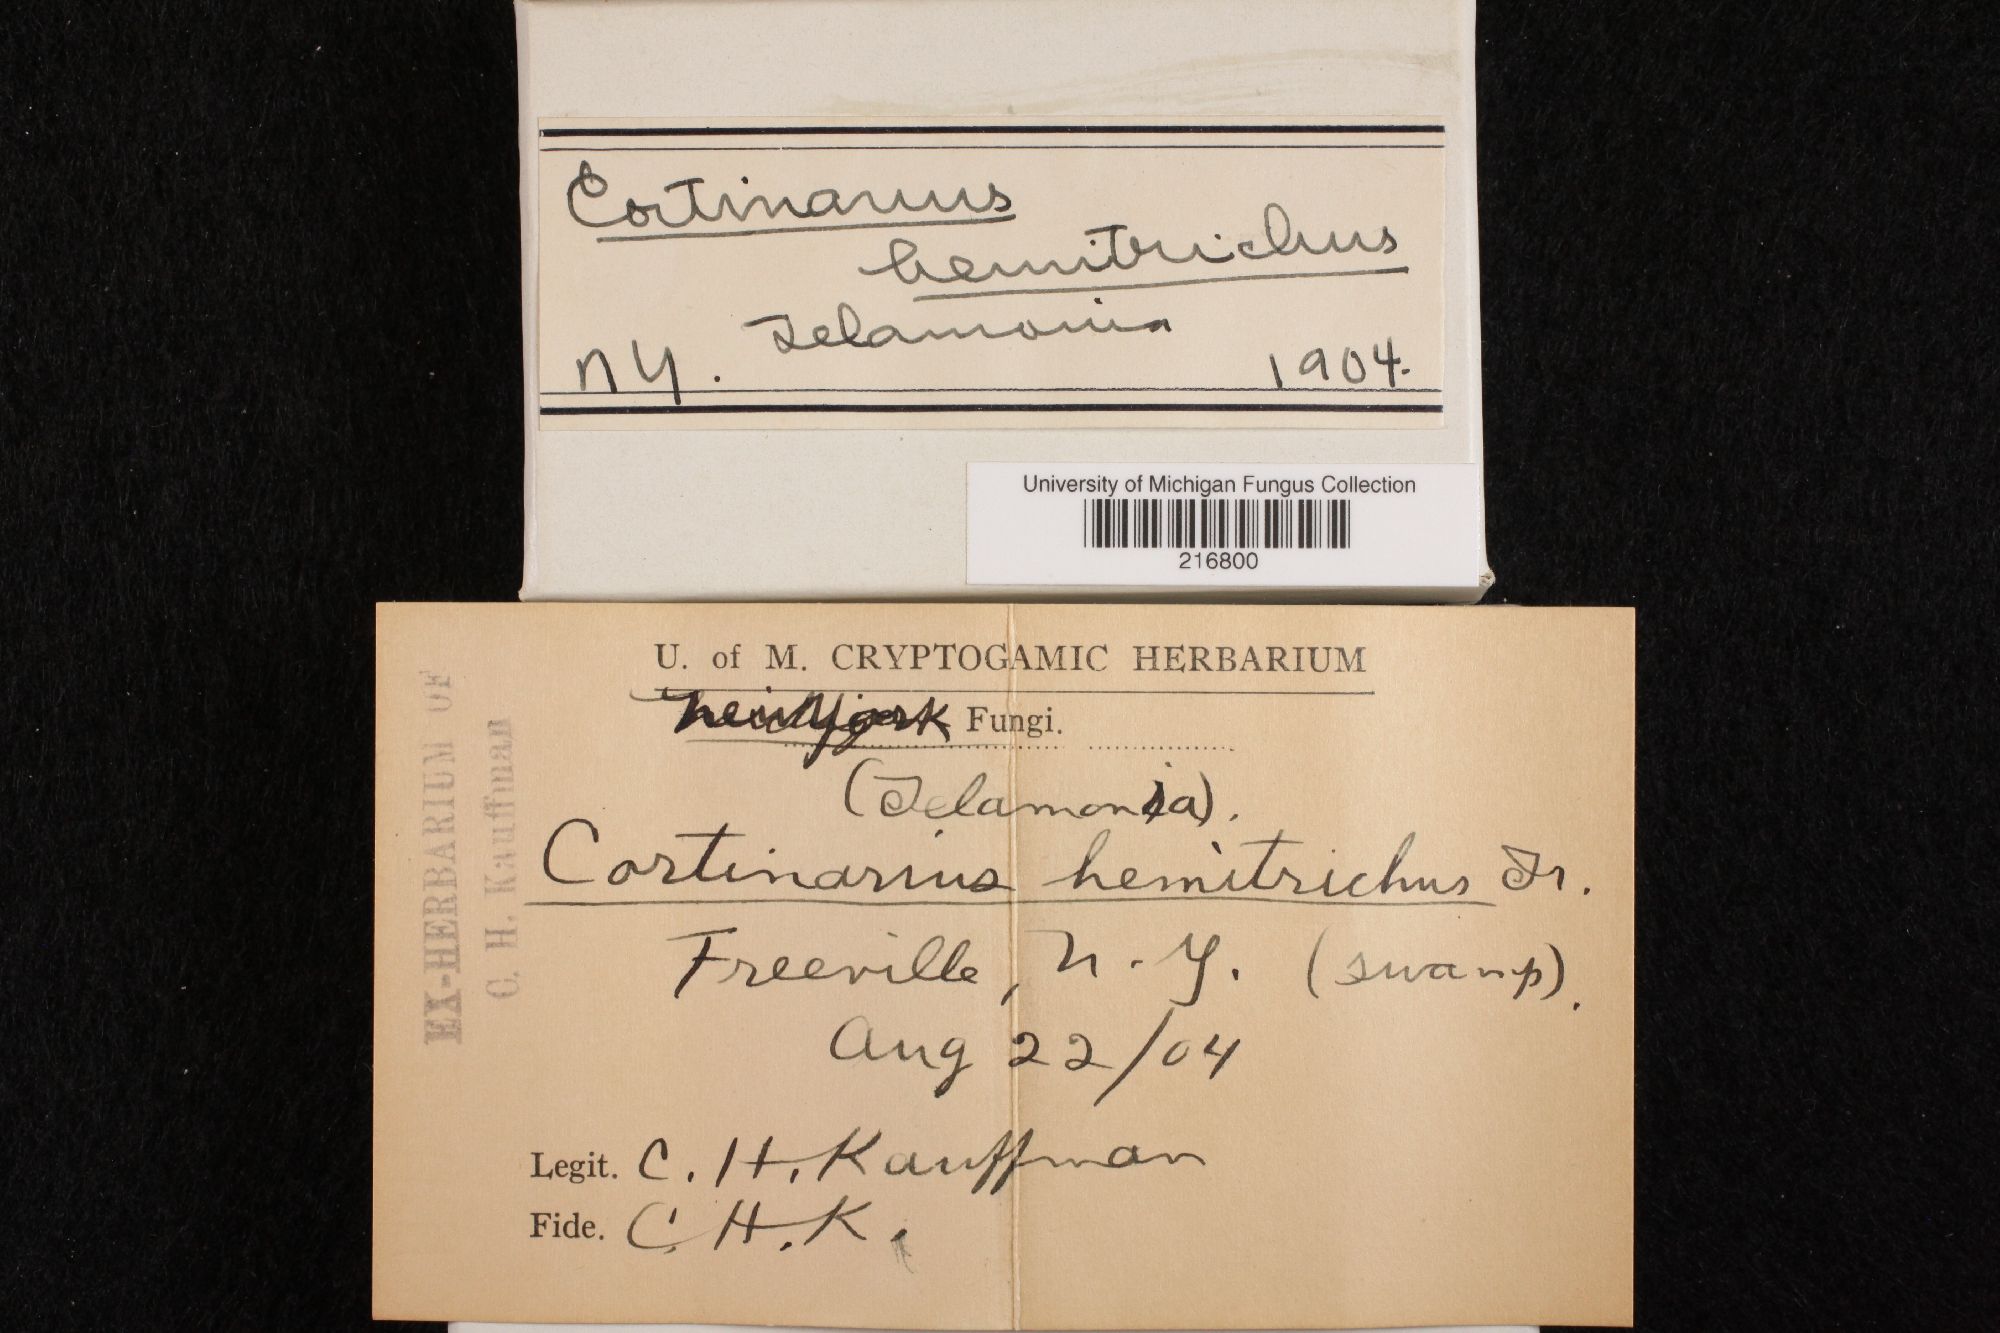 Cortinarius
hemitrichus
Telamonia
NY. 1904.
University of Michigan Fungus Collection
216800
U. of M. CRYPTOGAMIC HERBARIUM
New York Fungi.
(Telamonia).
Cortinarius hemitrichus Fr.
Freeville, N. Y. (swamp).
Aug 22/04
Legit. C. H. Kauffman
Fide. C. H. K.
EX-HERBARIUM OF
C. H. Kauffman